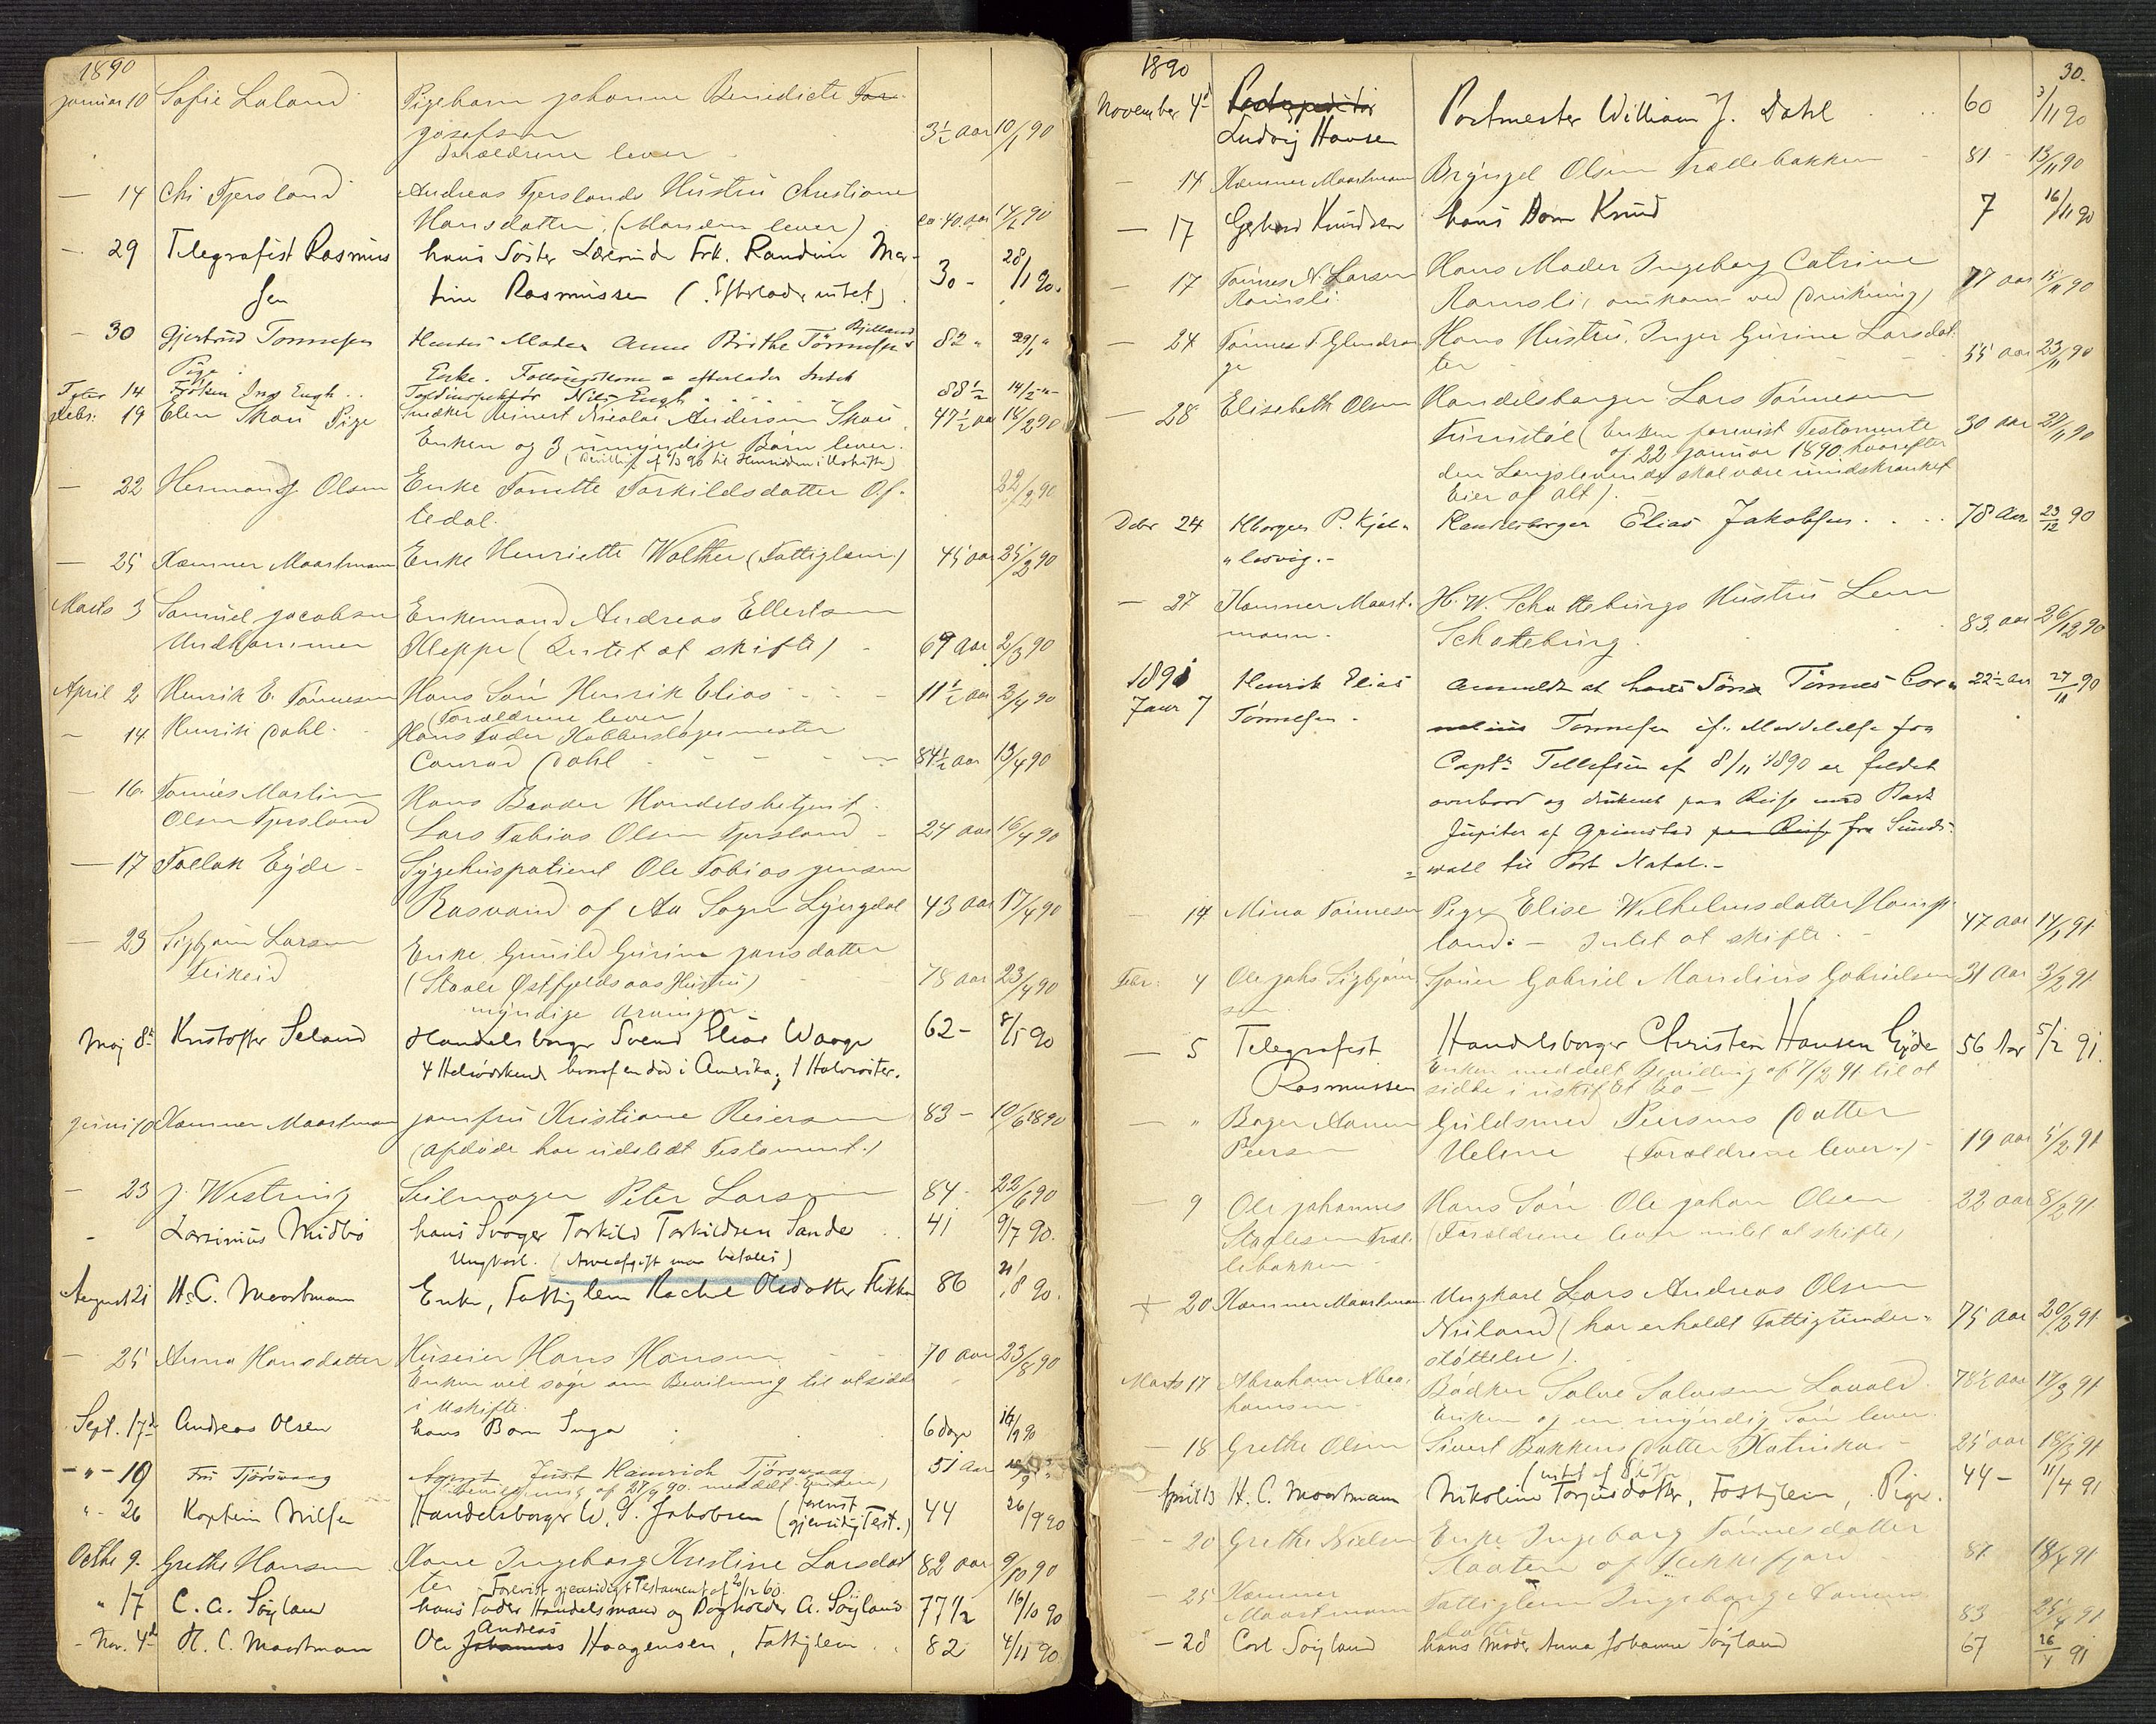 1890
Januar 10 Sofie Laland Pigebarn Johanne Benedicte Tor-
josefsen 3½ Aar 10/1 90
Forældrene lever
— 14 Chr Fjersland Andreas Fjerslands Hustru Christiane
Hansdatter, (Manden lever) ca. 40 aar 14/1 90
— 29 Telegrafist Rasmus hans Søster Lærerinde Frk. Randine Mar-
sen tine Rasmussen (Efterlader intet) 30 - 28/1 90.
— 30 Gjertrud Tønnesen Hendes Moder Anne Birthe Tønnesen Bjelland 82 " 29/1 "
Enke. Fattiglem efterlader Intet
Pige
Febr 14 Frøken Ing Engh Toldinspektør Nils Engh 88½ 14/2 "
Febr: 19 Elen Skau Pige Snedker Reinert Nicolai Andersen Skau 47½ aar 18/2 90
Enken og 3 umyndige Børn lever.
— 22 Hermand Olsen Enke Tonette Torkildsdatter Of-
tedal. 22/2 90
— 25 Kæmner Maartmann Enke Henriette Walther (Fattiglem) 45 aar 25/2 90
Marts 3 Samuel Jacobsen Enkemand Andreas Ellertsen
Undhammer Kleppe (Intet at skifte) 69 Aar 2/3 90
April 2 Henrik E. Tønnesen Hans Søn Henrik Elias 11½ aar 2/4 90
(Forældrene lever)
— 14 Henrik Dahl Hans Fader Kobberslagermester
Conrad Dahl 84½ aar 13/4 90
— 16. Tønnes Martin Hans Broder Handelsbetjent
Olsen Fjersland Lars Tobias Olsen Fjersland 24 aar 16/4 90
— 17 Tallak Eyde Sygehuspatient Ole Tobias Jensen
Rasvand af Aa Sogn Lyngdal 43 aar 17/4 90
— 23 Sigbjørn Larsen Enke Gunild Gurine Jansdatter
Feikeid (Staale Østfjeldsaas Hustru) 78 aar 23/4 90
myndige Arvinger
Maj 8d Kristoffer Seland Handelsborger Svend Elias Waage 62 - 8/5 90
4 Helsødskende hvoraf en død i Amerika, 1 Halvsøster.
Juni 10 Kæmner Maartmann Jomfru Kristiane Reiersen 83 - 10/6 1890
(afdøde har udstedt Testament.)
— 23 J. Westring Seilmager Peter Larsen 84 - 22/6 90
— Larsinius Midbø hans Svoger Torkild Torkildsen Sande 41 9/7 90.
Ungkarl. (Arveafgift maa betales)
August 21 H.C. Maartmann Enke, Fattiglem Rachel Olsdatter Flikke 86 21/8 90.
— 25 Anna Hansdatter Huseier Hans Hansen 70 aar 23/8 90
Enken vil søge om Bevilning til at sidde
i Uskifte.
Sept. 17d Andreas Olsen hans Barn Inga 6 dage 16/9 90
— " — 19 Fru Tjørsvaag Agent Just Heinrich Tjørsvaag 51 Aar
(Bevilgning af 27/9 90 meddelt Enken)
" 26 Kaptein Nilsen Handelsborger W. S. Jakobsen (forevist gjensidig Test.) 44 26/9 90
Octbr 9. Grethe Hansen Kone Ingeborg Kristine Larsdat 82 aar 9/10 90
ter Forevist gjensidigt Testament af 20/12 60.
" 17 C. A. Søyland hans Fader Handelsmand og Bogholder A. Søyland 77½ 16/10 90
Andreas
— Nov. 4d H. C. Maartmann Ole Johannes Haagensen, Fattiglem 82 4/11 90
1890 30.
November 4d Postexpeditør Postmester William J. Dahl 60 3/11 90
Ludvig Hansen
— 14 Kæmner Maartmann Brynjel Olsen Trællebakken 81 - 13/11 90
— 17 Gerhard Knudsen hans Barn Knud 7 16/11 90
— 17 Tønnes N. Larsen Hans Moder Ingeborg Catrine
Ramsli Ramsli, omkom ved (Drukning) 77 aar 15/11 90
— 24 Tønnes T. Glendran Hans Hustru, Inger Gurine Larsdat
ge ter 55 aar 23/11 90
— 28 Elisabeth Olsen Handelsborger Lars Tønnesen
Turistøl (Enken forevist Testamente 30 aar 27/11 90
af 22 Januar 1890 hvorefter
den Længstlevende skal være uindskrænket
Eier af Alt).
Debr 24 Hborger P. Kjel- Handelsborger Elias Jakobsen 78 Aar 23/12 90
" lesvig.-
— 27 Kæmner Maart- H. W. Schatteburgs Hustru Lene
mann. Schatteburg. 83 aar 26/12 90
1891
Janr 7 Henrik Elias Anmeldt at hans Søn Tønnes Cor- 22½ Aar 27/11 90
Tønnesen - nelius Tønnesen if. Meddelelse fra
Captn Tellefsen af 8/11 1890 er faldet
overbord og druknet paa Reise med Bark
Jupiter af Grimstad paa Reise fra Sunds-
wall til Port Natal.-
— 14 Mina Tønnesen Pige Elise Wilhelmsdatter Homp-
land: - Intet at skifte. 47 aar 14/1 91
Febr: 4 Ole Jahs Sigbjørn Tjener Gabriel Mandius Gabrielsen 31 Aar 3/2 91
sen
— 5 Telegrafist Handelsborger Christen Hansen Eyde 56 Aar 5/2 91.
Rasmussen Enken meddelt Bevilling af 7/2 91 til at
sidde i uskiftet Bo -
— " Bager Aanen Guldsmed Peersens Datter
Peersen Helene (Forældrene lever.) 19 aar 5/2 91
— 9 Ole Johannes Hans Søn Ole Johan Olsen 22 aar 8/2 91
Staalesen Træl- (Forældrene lever intet at skifte)
lebakken
+ 20 Kæmner Maartmann Ungkarl Lars Andreas Olsen
Nuland (har erholdt Fattigunder- 75 Aar 20/2 91
støttelse).
Marts 17 Abraham Abra- Bødker Salve Salvesen Lavold 78½ aar 17/3 91
hamsen Enken og en myndig Søn lever.
— 18 Grethe Olsen Sivert Bakkens Datter Katinka 25 aar 18/3 91
April 13 H. C. Maartmann Nikoline Torjusdatter, Fattiglem, Pige. 44 - 11/4 91
— 20 Grethe Nielsen Enke Ingeborg Tønnesdatter
Slaaten af Fækkefjord 87 18/4 91
— 25 Kæmner Fattiglem Ingeborg Aanen
Maartmann datter 83 25/4 91
— 28 Carl Søyland hans Moder Anna Johanne Søyland 67 26/4 91